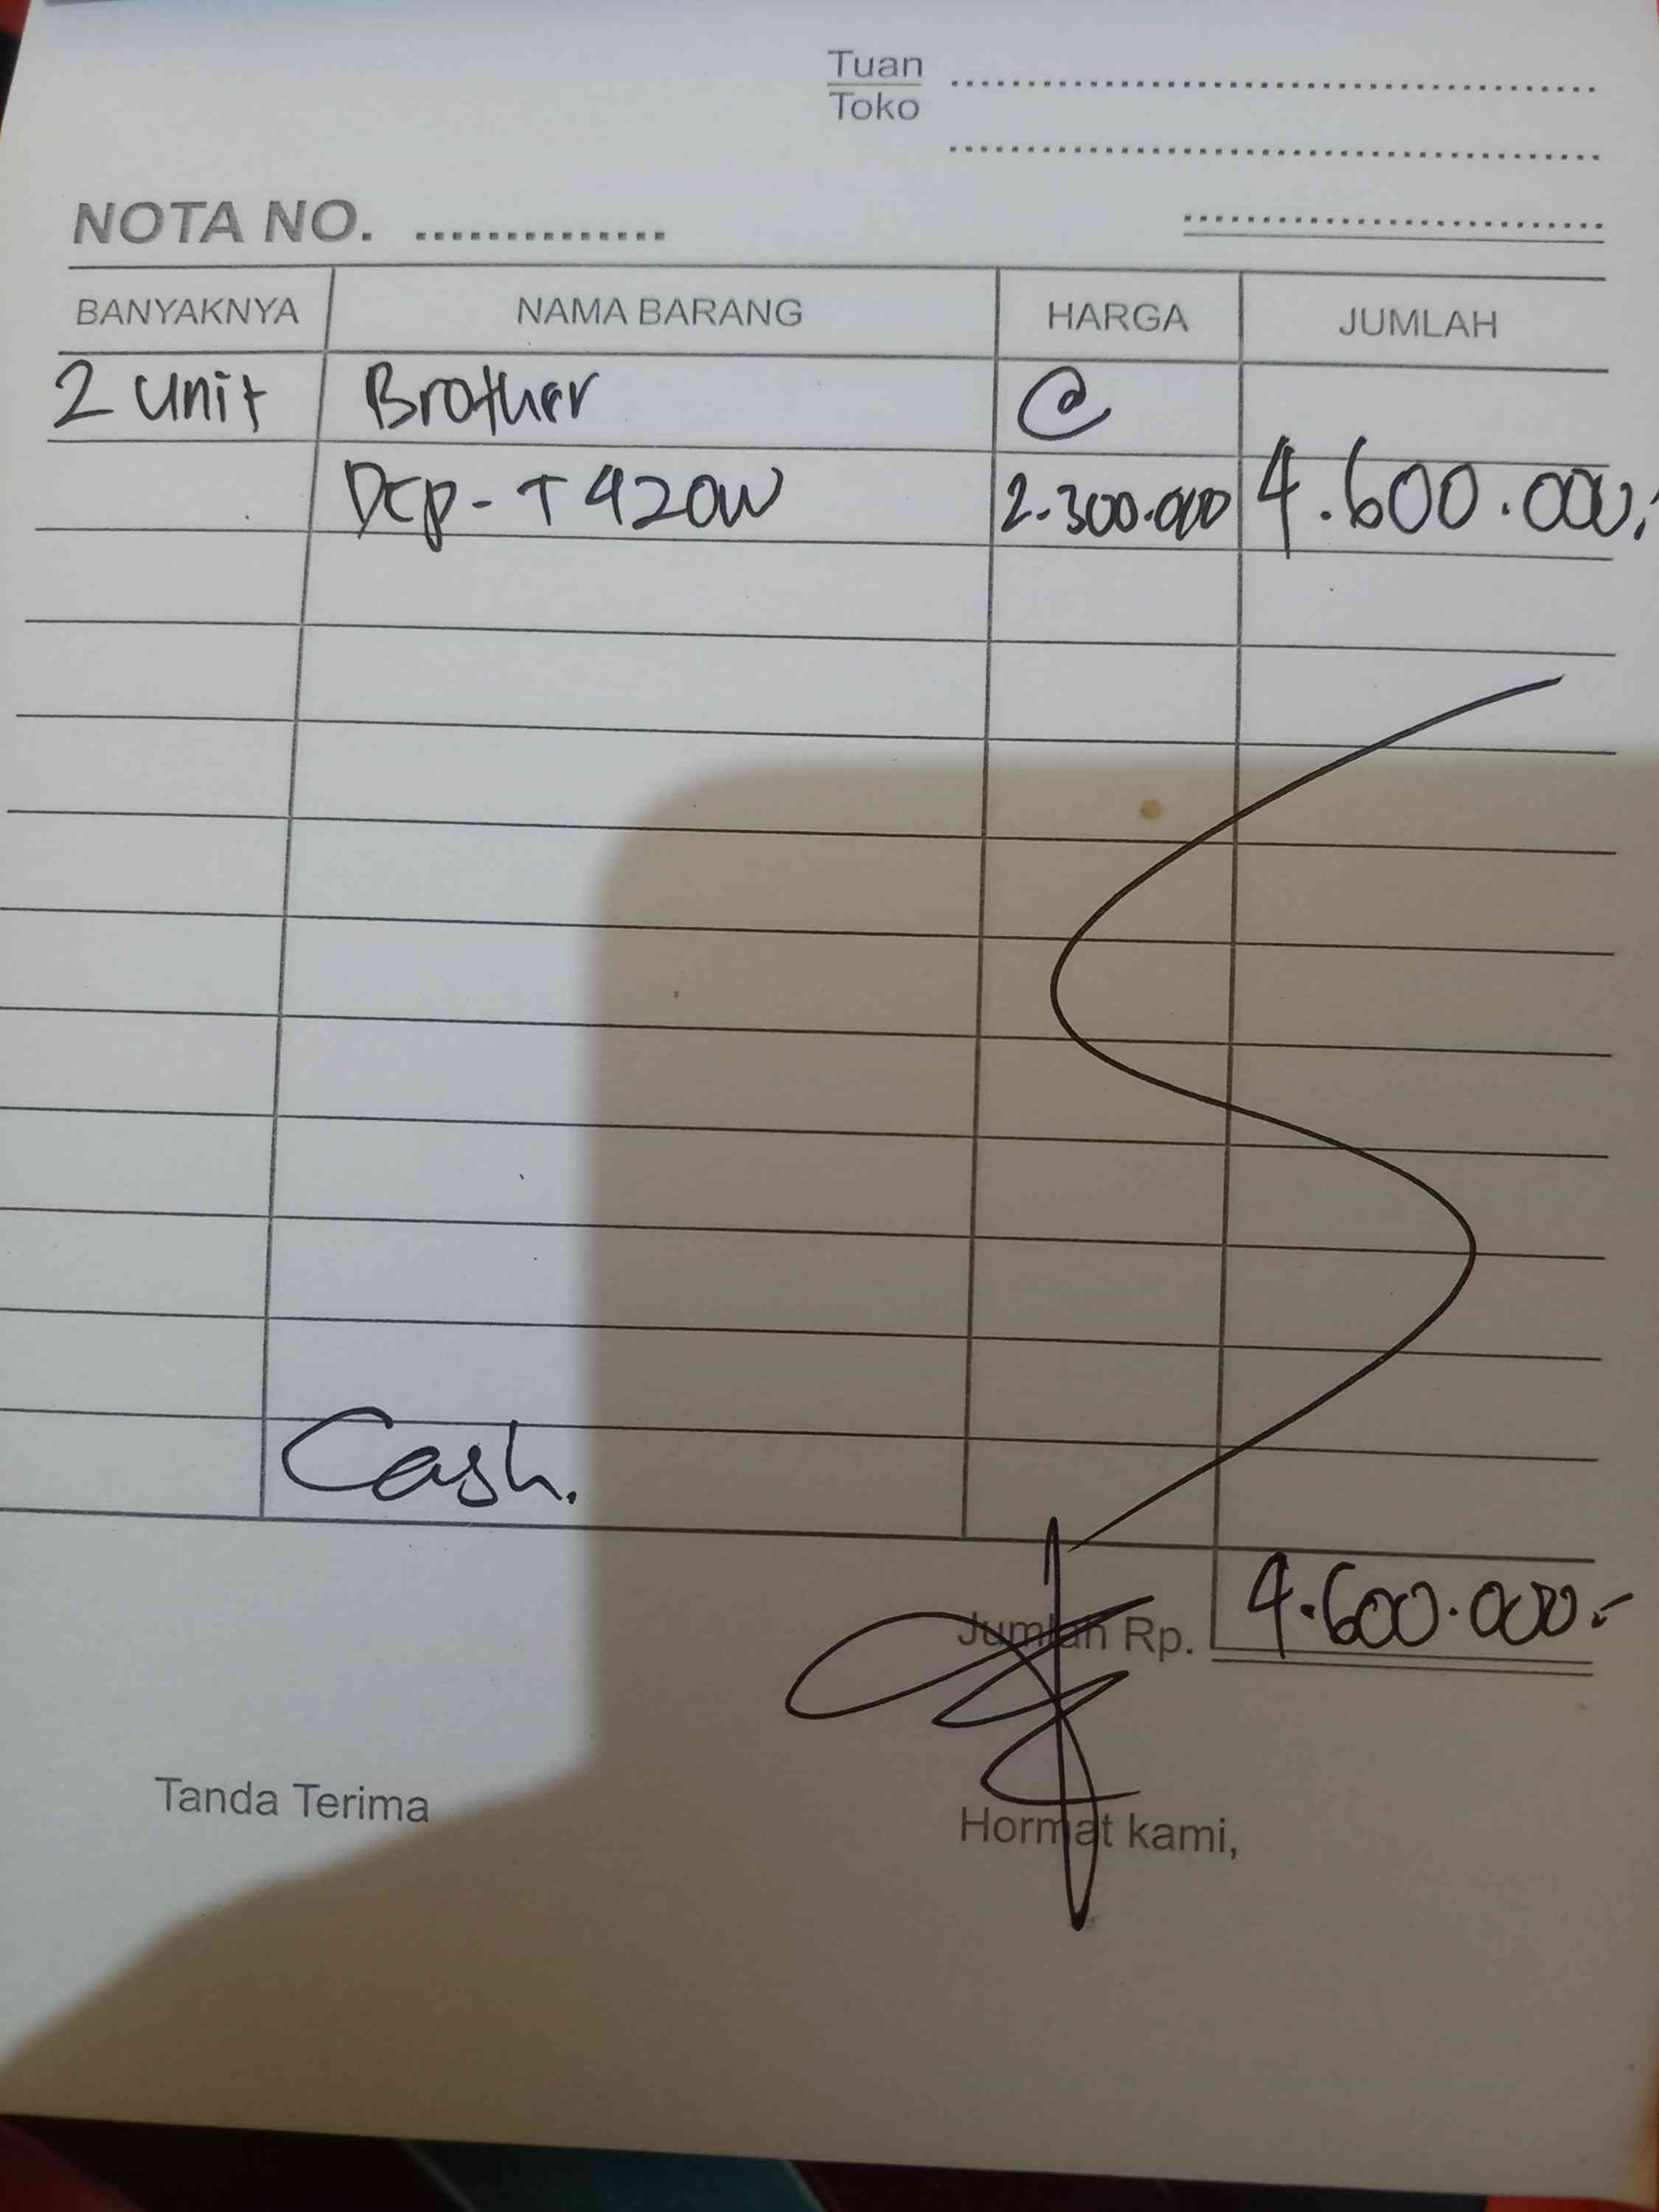 Tuan
Toko
NOTA NO.
BANYAKNYA NAMA BARANG HARGA JUMLAH
2 unit Brother @
Dcp-T420W 2.300.000 4.600.000,-
Cash.
Jumlah Rp. 4.600.000.-
Tanda Terima Hormat kami,